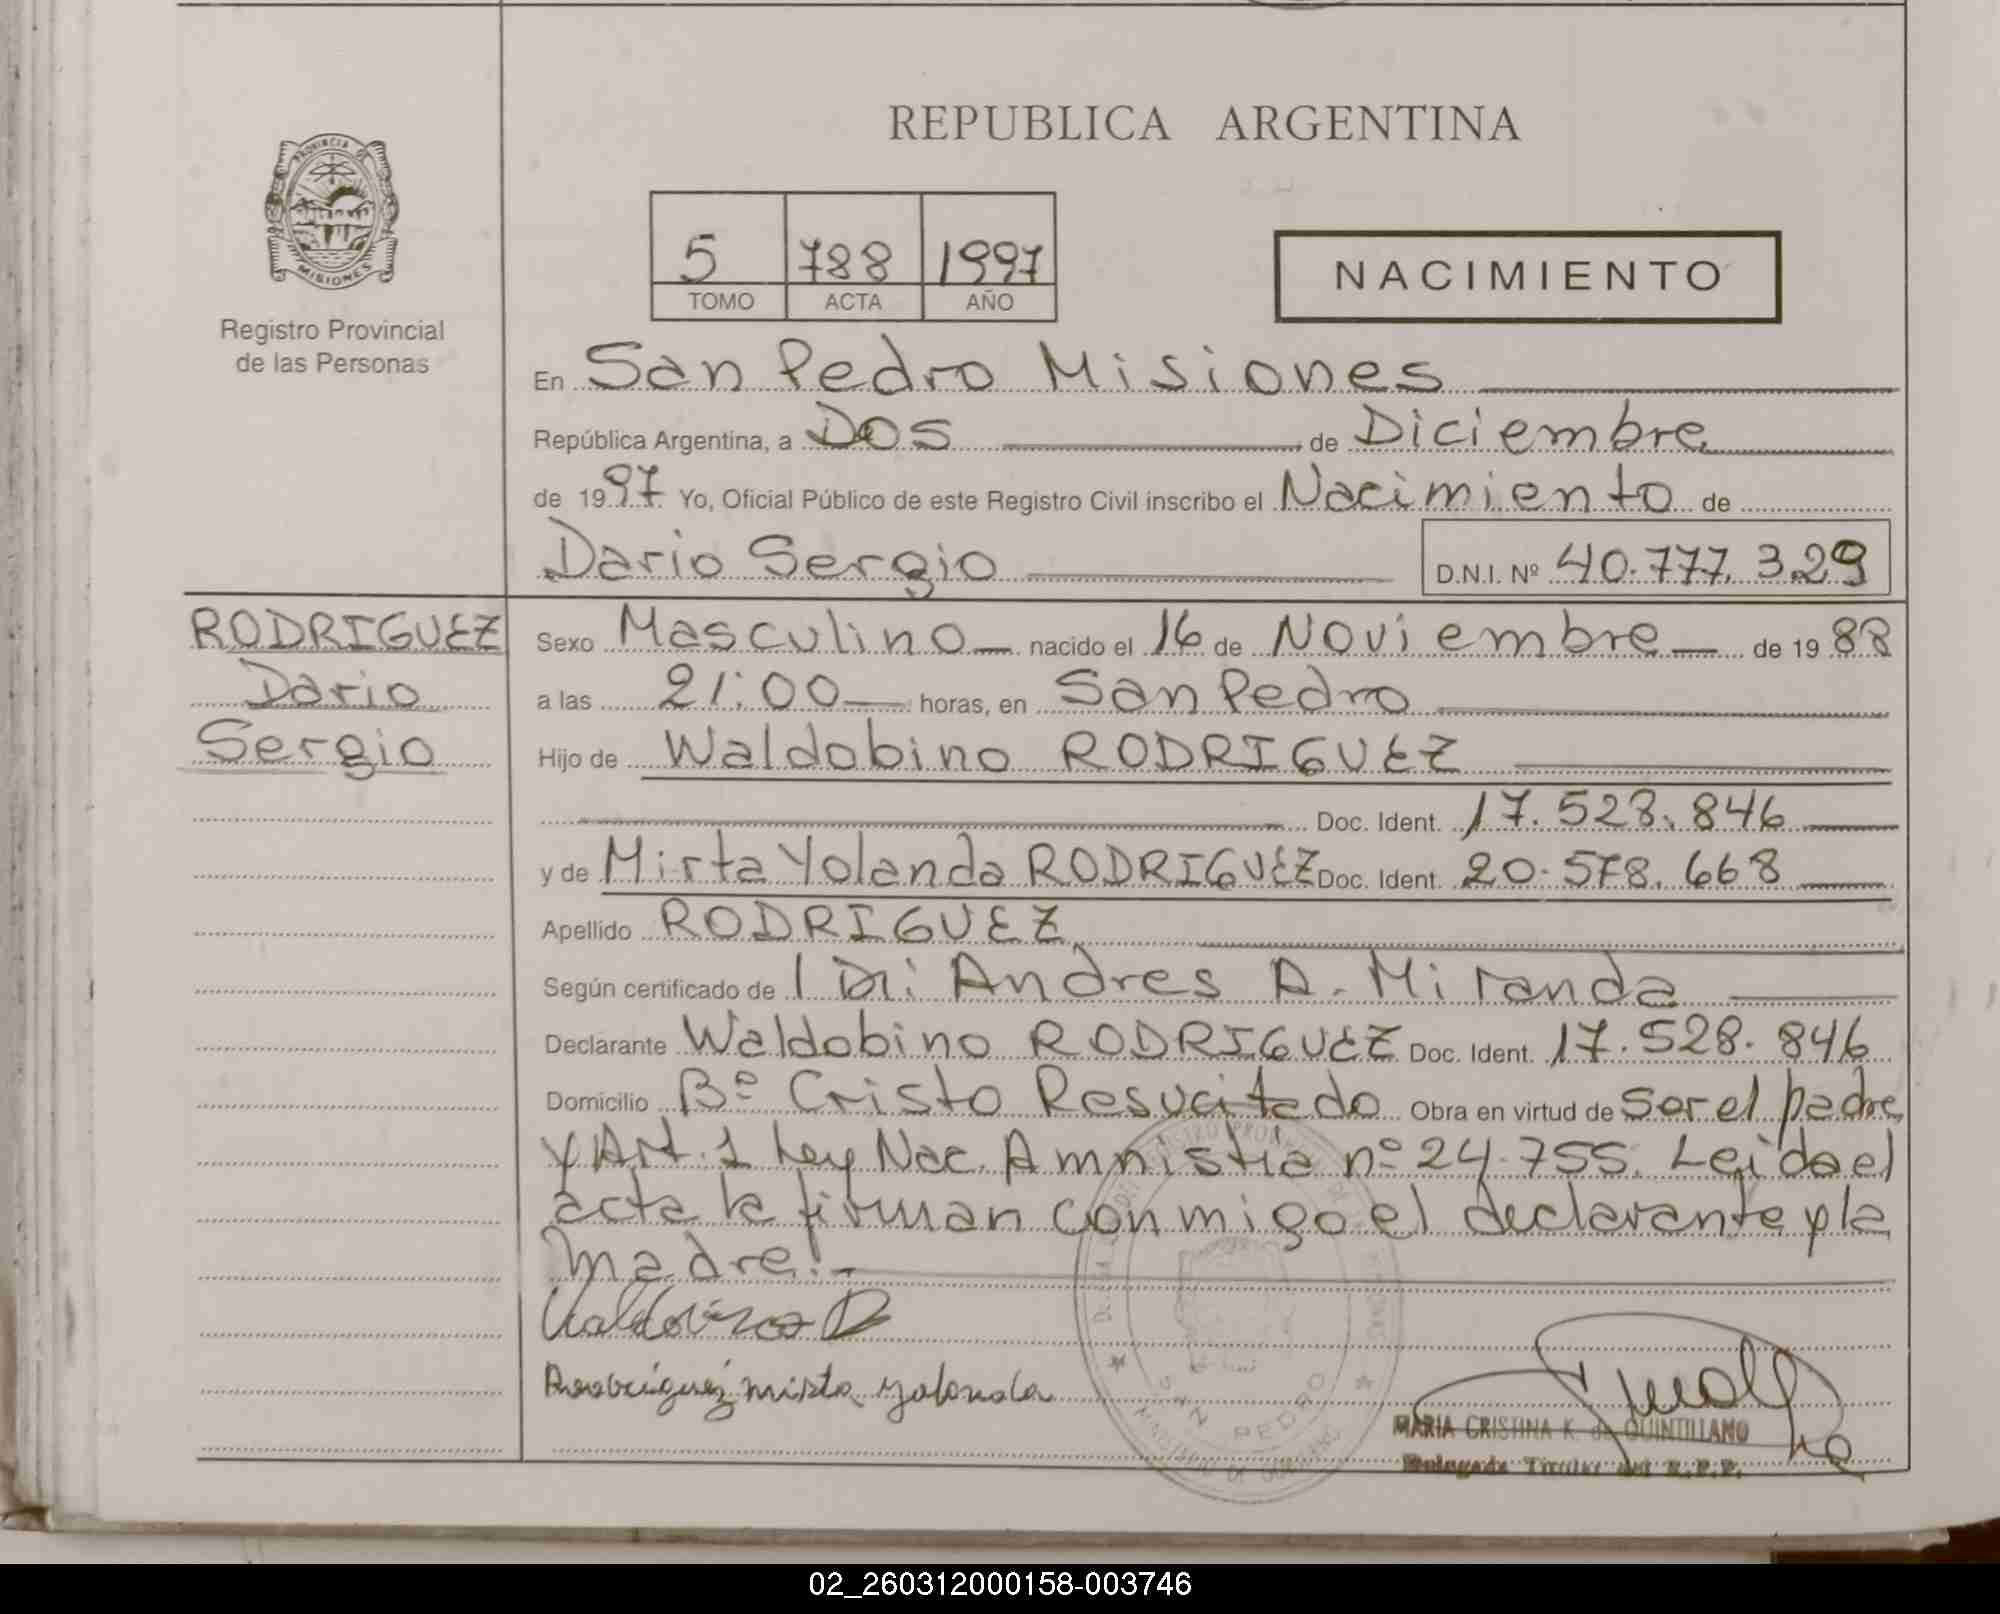 REPUBLICA ARGENTINA
PROVINCIA DE
MISIONES
Registro Provincial
de las Personas
5 788 1997
TOMO ACTA AÑO
NACIMIENTO
En San Pedro Misiones
República Argentina, a Dos de Diciembre
de 1997 Yo, Oficial Público de este Registro Civil inscribo el Nacimiento de
Dario Sergio D.N.I. Nº 40.777.329
RODRIGUEZ
Dario
Sergio
Sexo Masculino nacido el 16 de Noviembre de 1988
a las 21:00 horas, en San Pedro
Hijo de Waldobino RODRIGUEZ
Doc. Ident. 17.528.846
y de Mirta Yolanda RODRIGUEZ Doc. Ident. 20.578.668
Apellido RODRIGUEZ
Según certificado de Andres A. Miranda
Declarante Waldobino RODRIGUEZ Doc. Ident. 17.528.846
Domicilio Bº Cristo Resucitado Obra en virtud de ser el padre
y Art. 1 Ley Nac. Amnistia nº 24.755. Leida el
acta la firman conmigo el declarante y la
madre.-
Rodriguez mirta yolanda
SAN PEDRO
MINISTERIO DE GOBIERNO
MARIA CRISTINA K. de QUINTILLAMO
Delegada Titular del R.P.P.
02_260312000158-003746